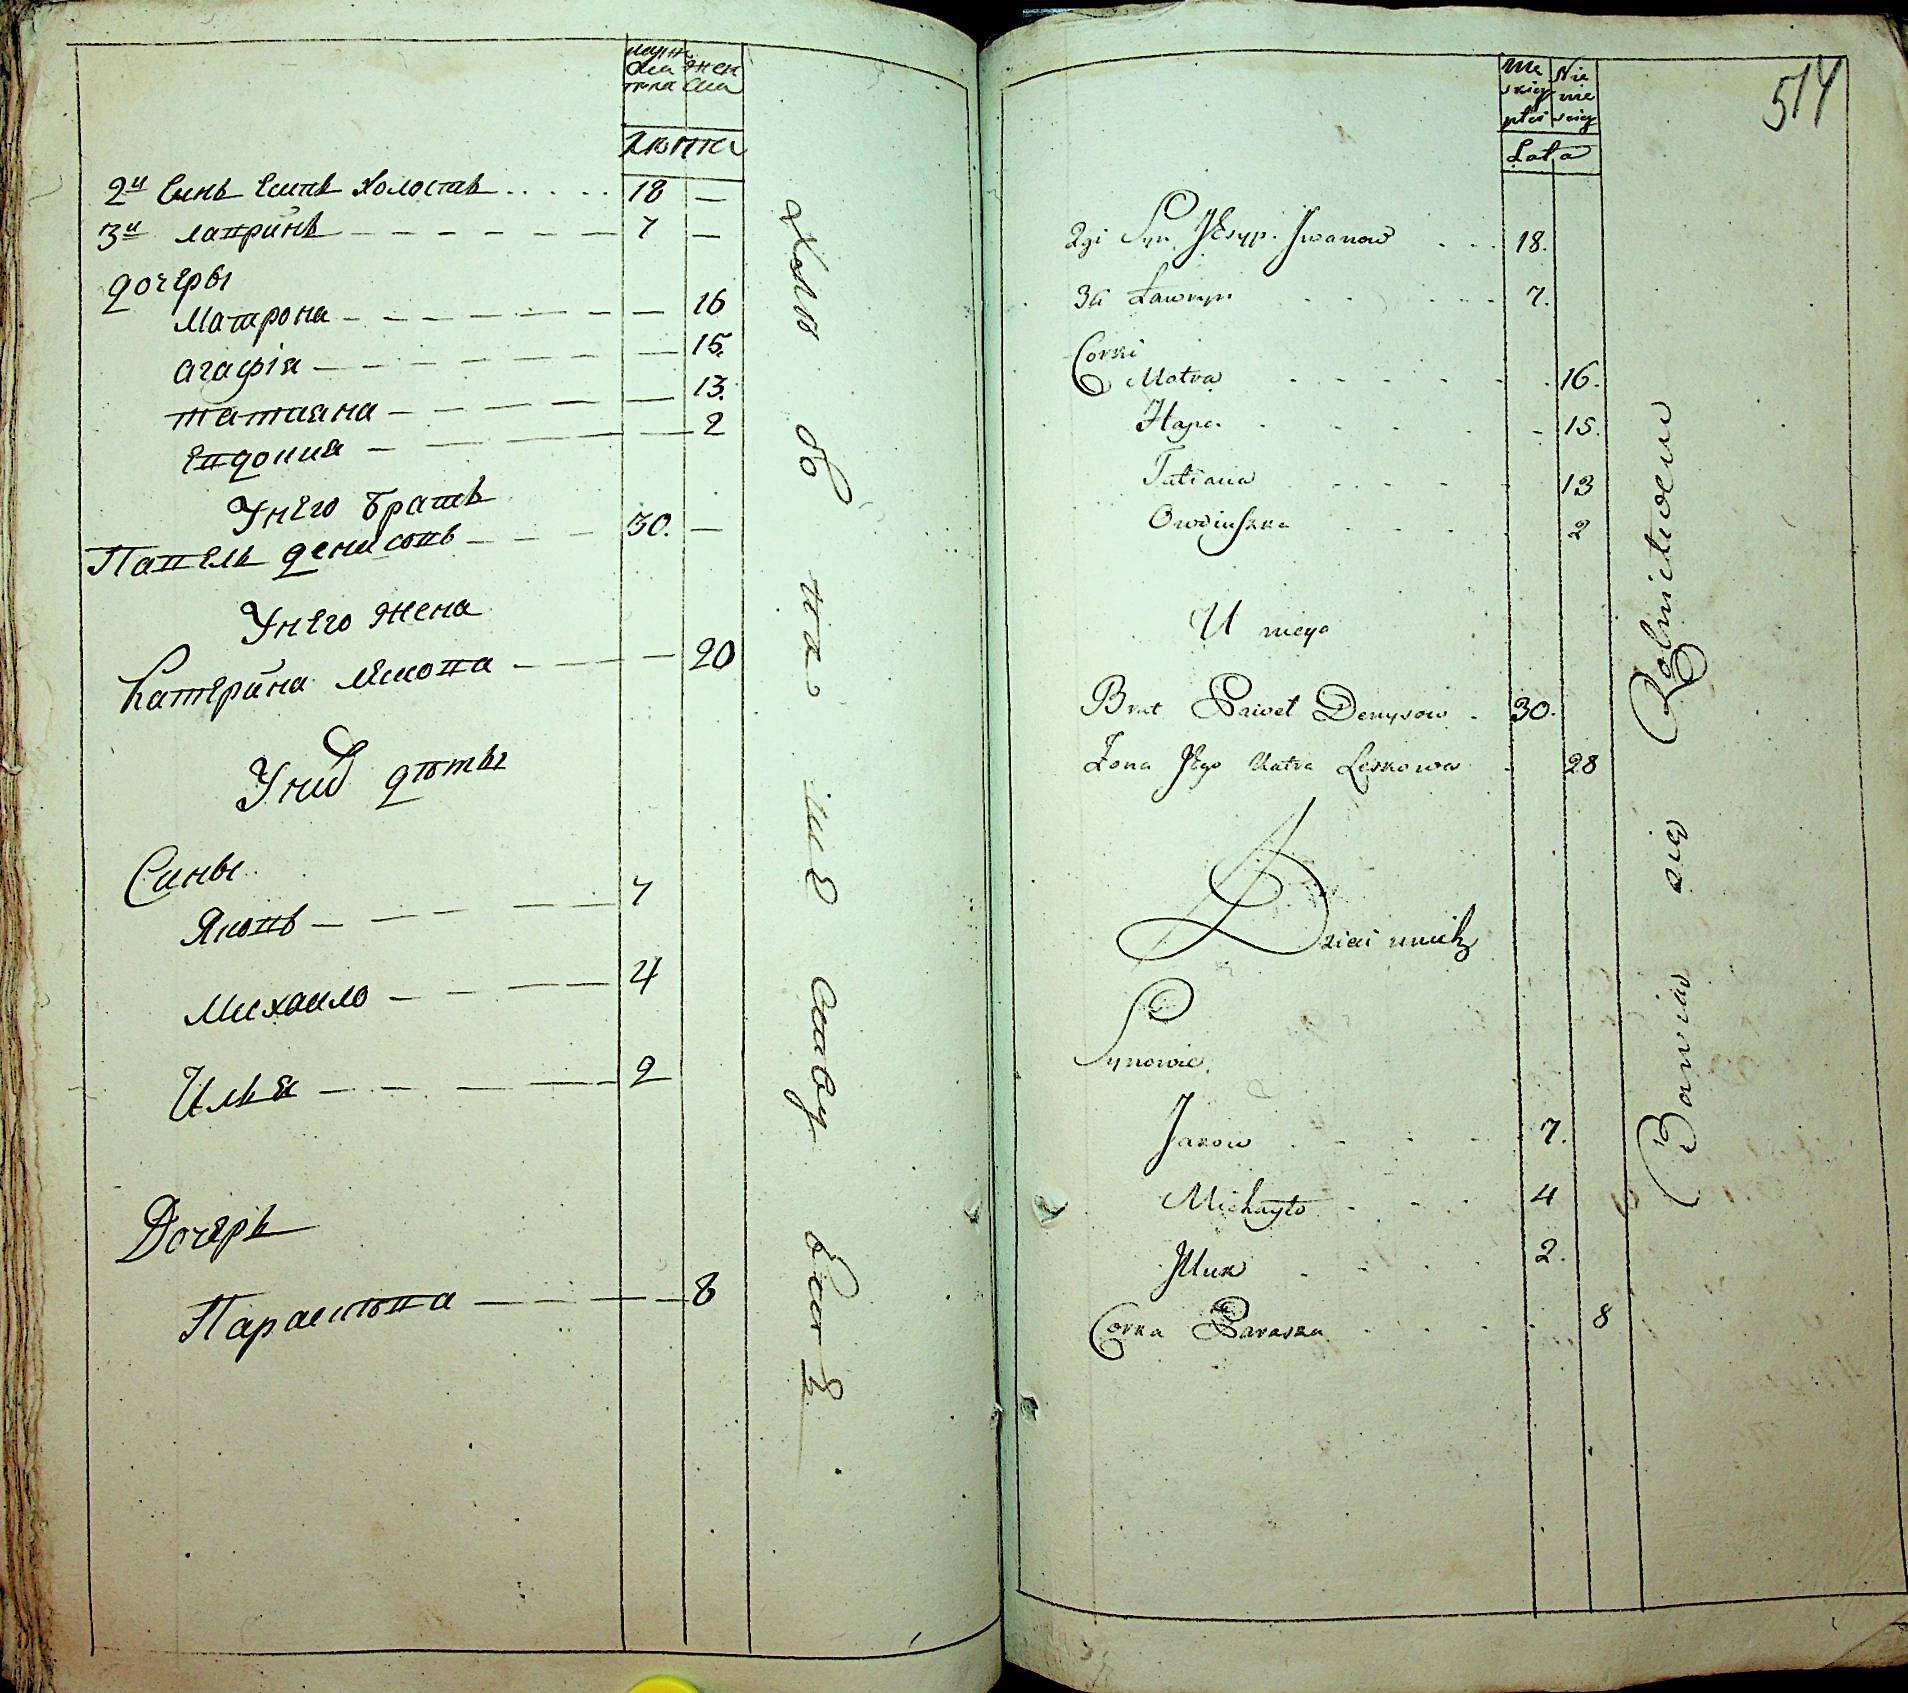 муж
ска жен
пола ска
лѣта
2й Синъ Есипъ холостъ 18 —
3й лавринъ 7 —
дочеры
Матрона 16
агафія 15.
татияна 13.
Евдокия 2
У него братъ
Павелъ денисовъ 30. —
У него жена
Катерина 20
У них дѣты
Сины
Яковъ 7
Михаило 4
Илья 2
Дочерь
Парасковa 8
Me
skiey
płci
Nie
wie
sciey
Lata
514
2gi Syn JEsyp. Jwanow 18.
3ci Ławryn 7.
Corki
Motra 16.
Hapa. 15.
Tatiana 13
Owdiuszka 2
U niego
Brat Paweł Denysow 30.
Żona JEgo Katra Leskowa 28
Dzieci u nich
Synowie.
Jakow 7.
Michayło 4
Jllia 2.
Corka Paraska 8
Bawia się Rolnictwem